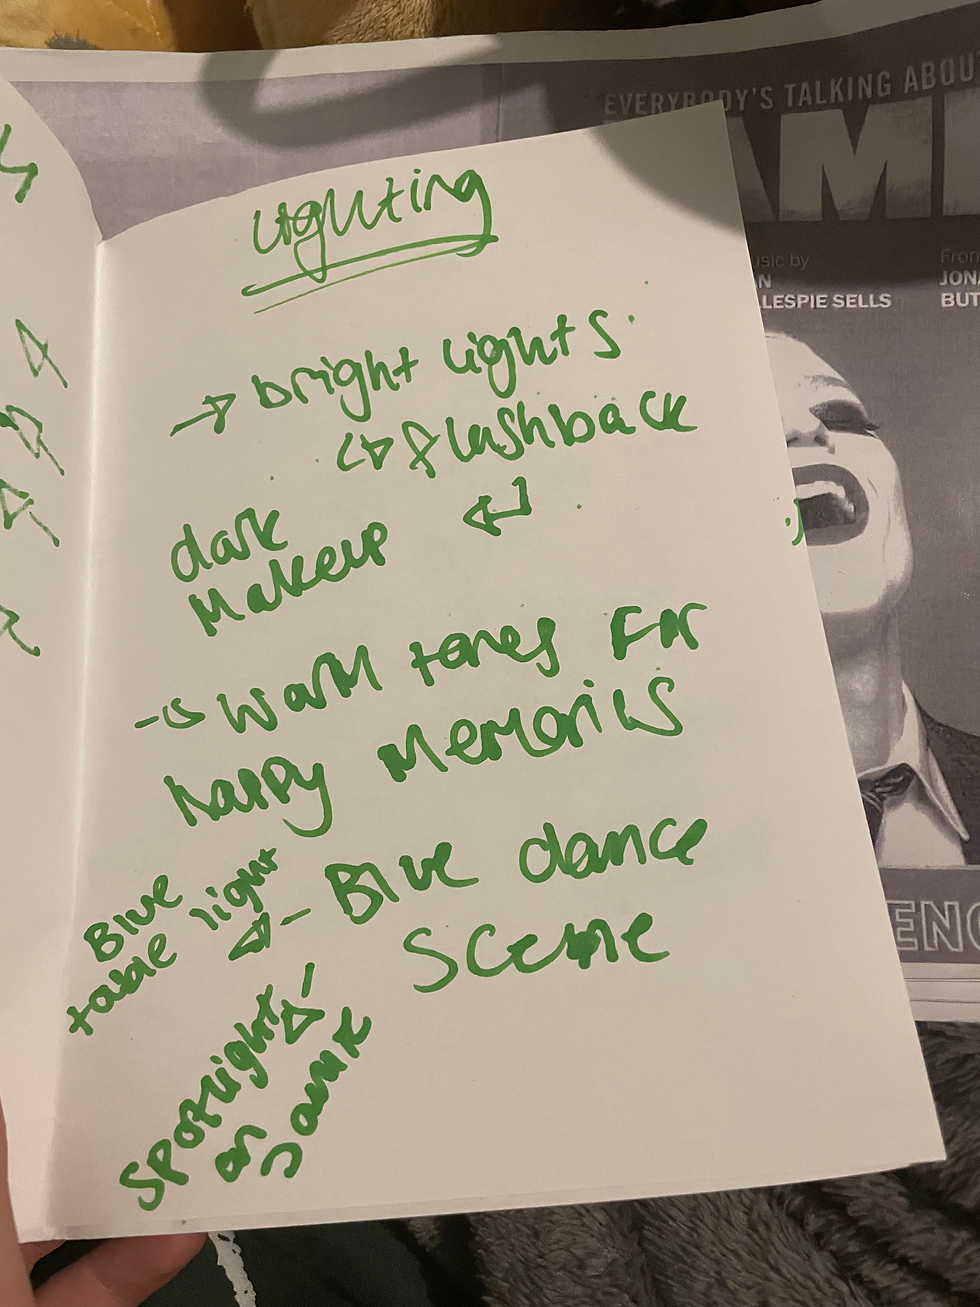 Lighting
→ bright lights
↳ flashback
dark ↵
Makeup
→ warm tones For
happy Memories
- Blue dance
Scene
Blue
table light
Spotlight
on
Jamie
EVERYBODY'S TALKING ABOU
AMI
usic by
N
LESPIE SELLS
From
JONA
BUT
ENC